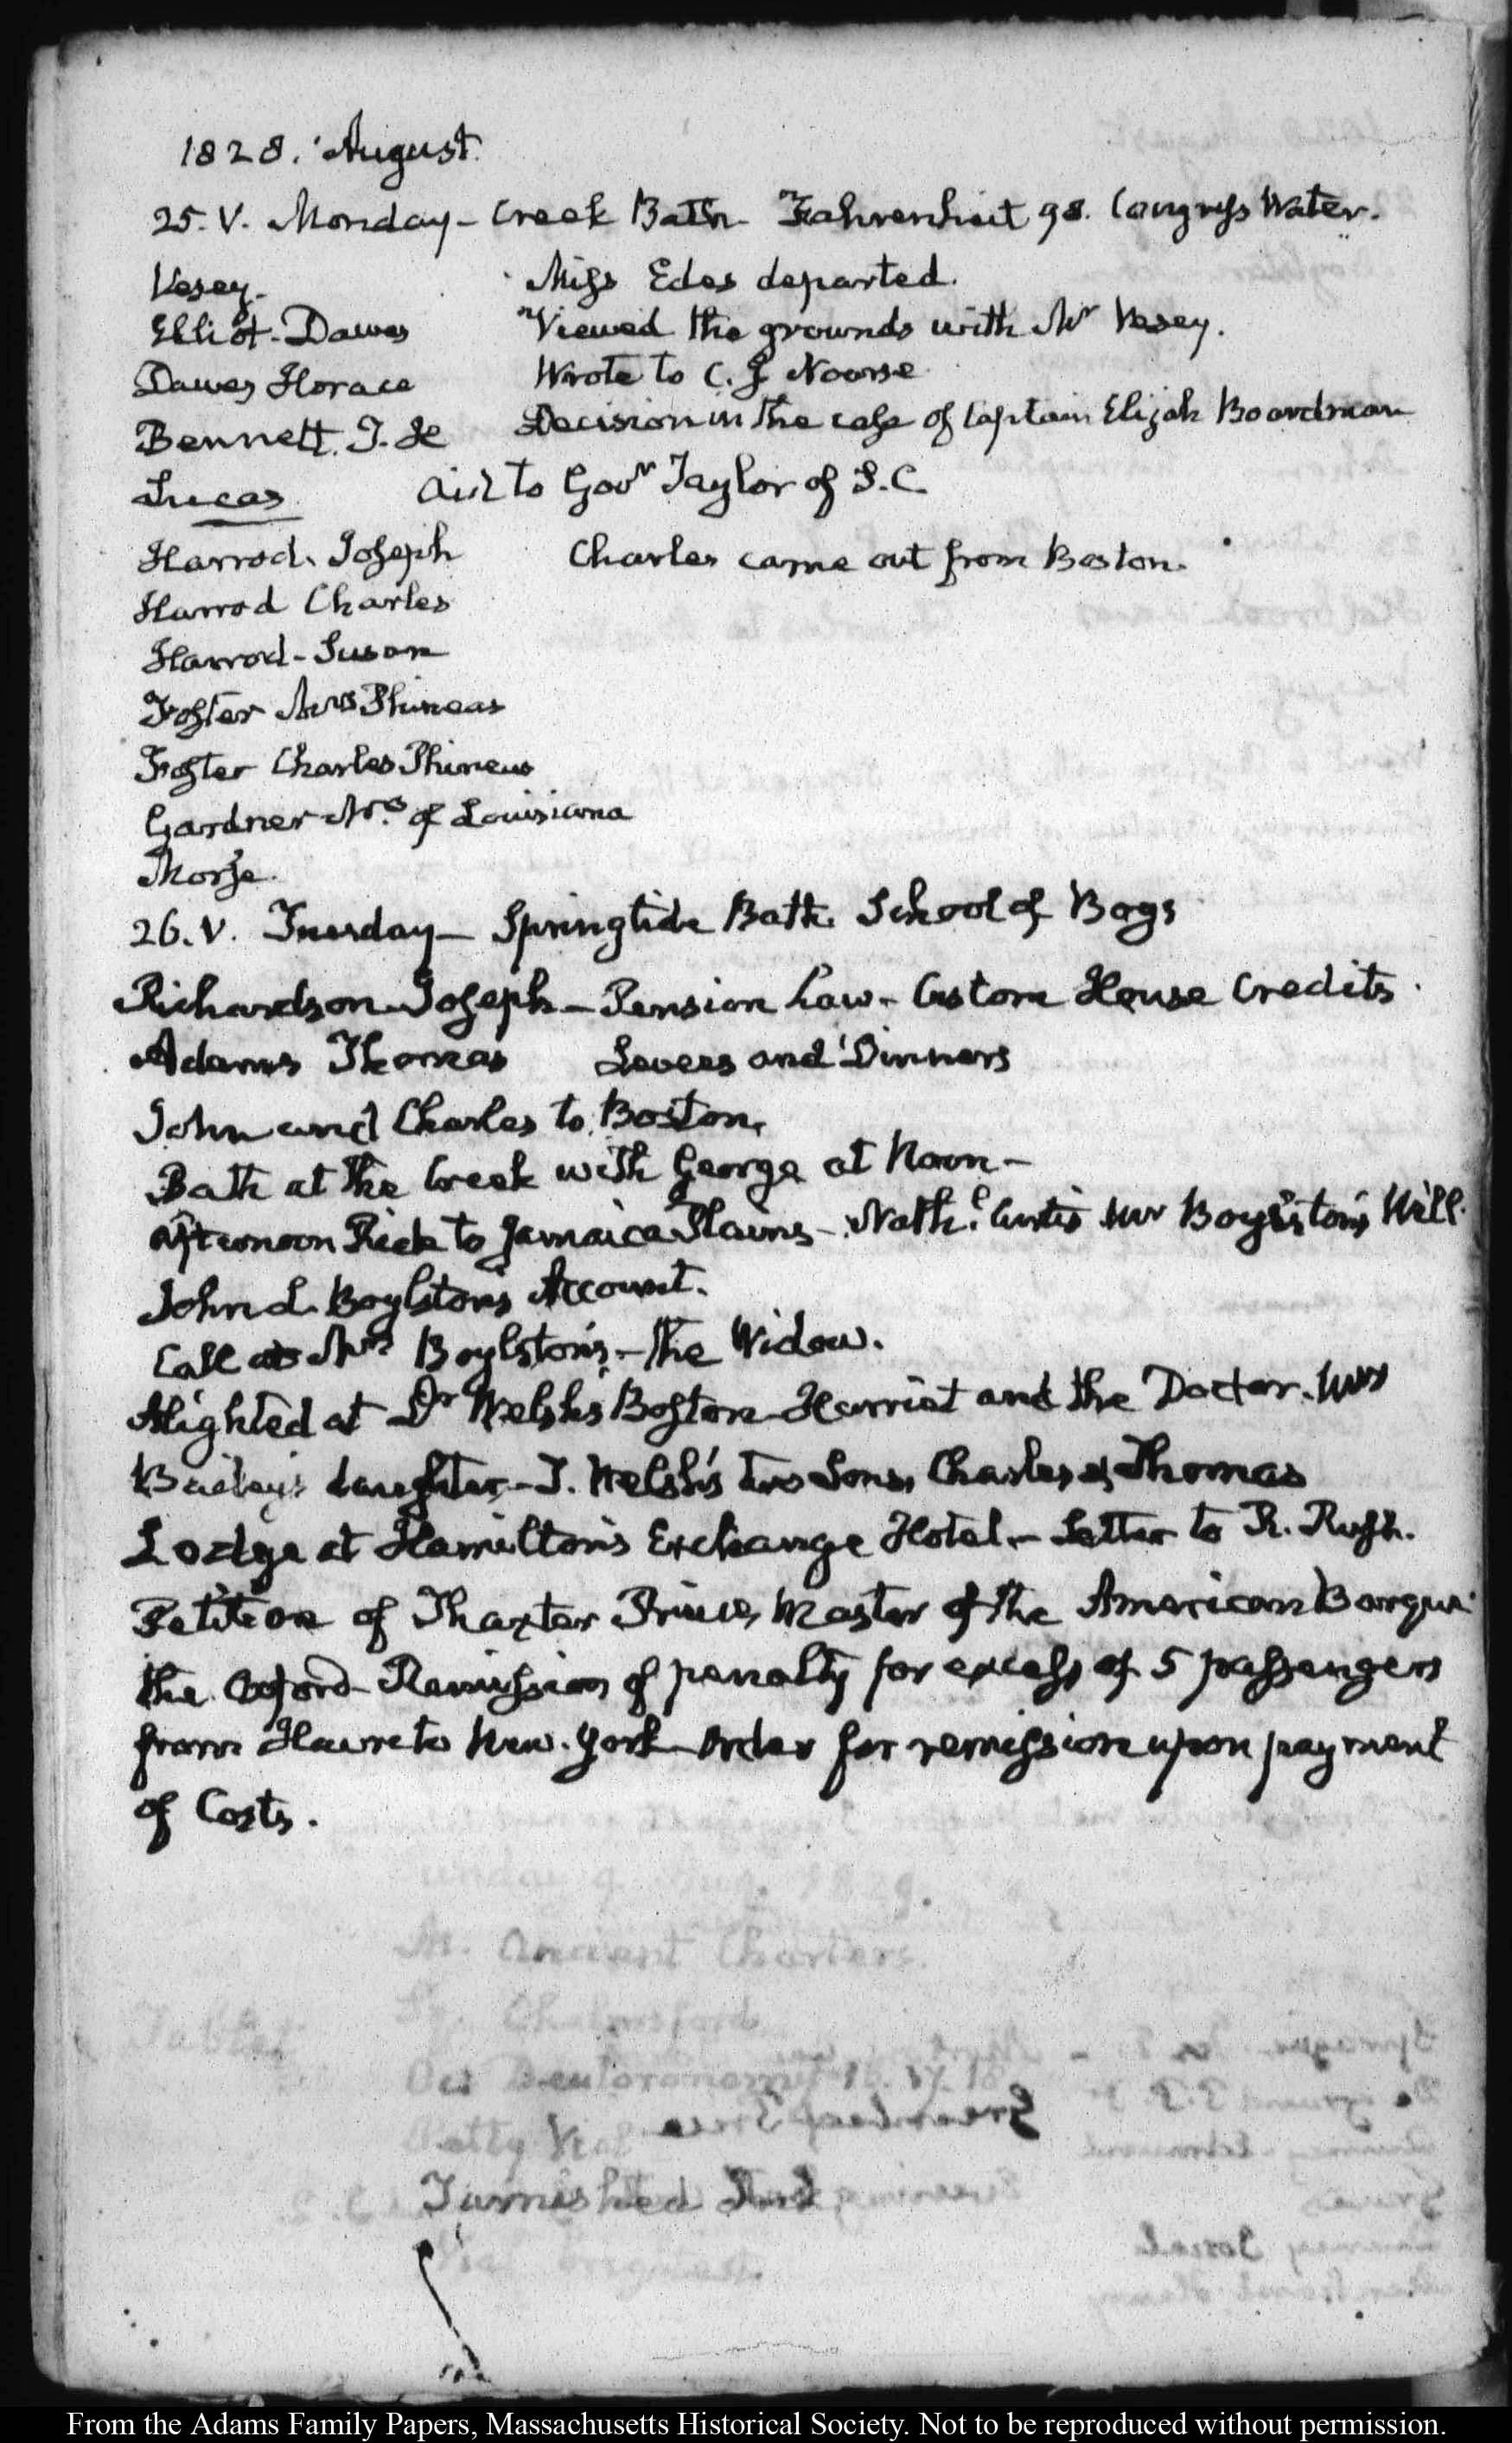 1828. August.
25. V. Monday - Creek Bath - Fahrenheit 98. Congress Water.
Vesey. Miss Edes departed.
Elliot - Dawes Viewed the grounds with Mr Vesey.
Dawes Horace Wrote to C. J Nourse
Bennett. T. Decision in the case of Captain Elijah Boardman
Lucas to Govr Taylor of S.C.
Harrod. Joseph Charles came out from Boston.
Harrod Charles
Harrod - Susan
Foster Mrs Phineas
Foster Charles Phineas
Gardner Mrs of Louisiana
Morse.
26. V. Tuesday - Springtide Bath. School of Boys
Richardson Joseph - Pension Law - Custom House Credits.
Adams Thomas Levees and Dinners
John and Charles to Boston.
Bath at the Creek with George at Noon -
Afternoon Ride to Jamaica Plains - Nathl. Curtis Boylston's Will.
John L. Boylston's Account.
Call at Mrs Boylston's - the Widow.
Alighted at Dr Welsh's Boston Harriet and the Doctor. Mrs
Bailey's daughter - T. Welsh's two Sons, Charles & Thomas
Lodge at Hamilton's Exchange Hotel - Letter to R. Rush.
Petition of Thaxter Prince, Master of the American Barque
the Oxford - Remission of penalty for excess of 5 passengers
from Havre to New-York - Order for remission upon payment
of Costs.
Furnished
From the Adams Family Papers, Massachusetts Historical Society. Not to be reproduced without permission.